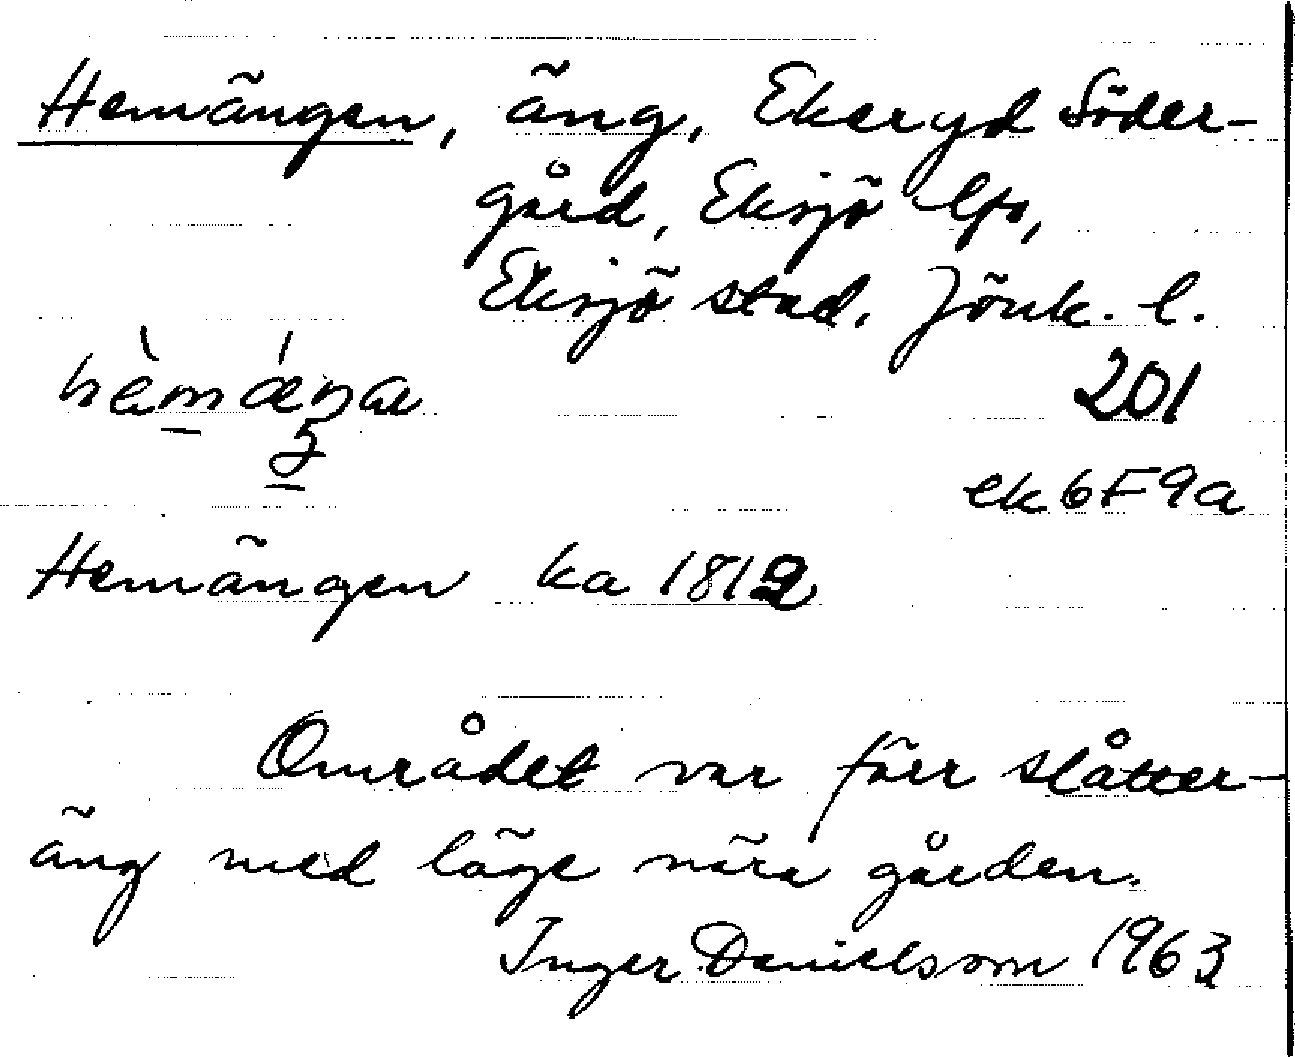 Hemängen, äng, Ekeryd Söder-
gård, Eksjö lfs,
Eksjö stad. Jönk. l.
201
ek6F9a
Hemängen ka 1812
Området var förr slåtter-
äng med läge nära gården.
Inger Danielsson 1963